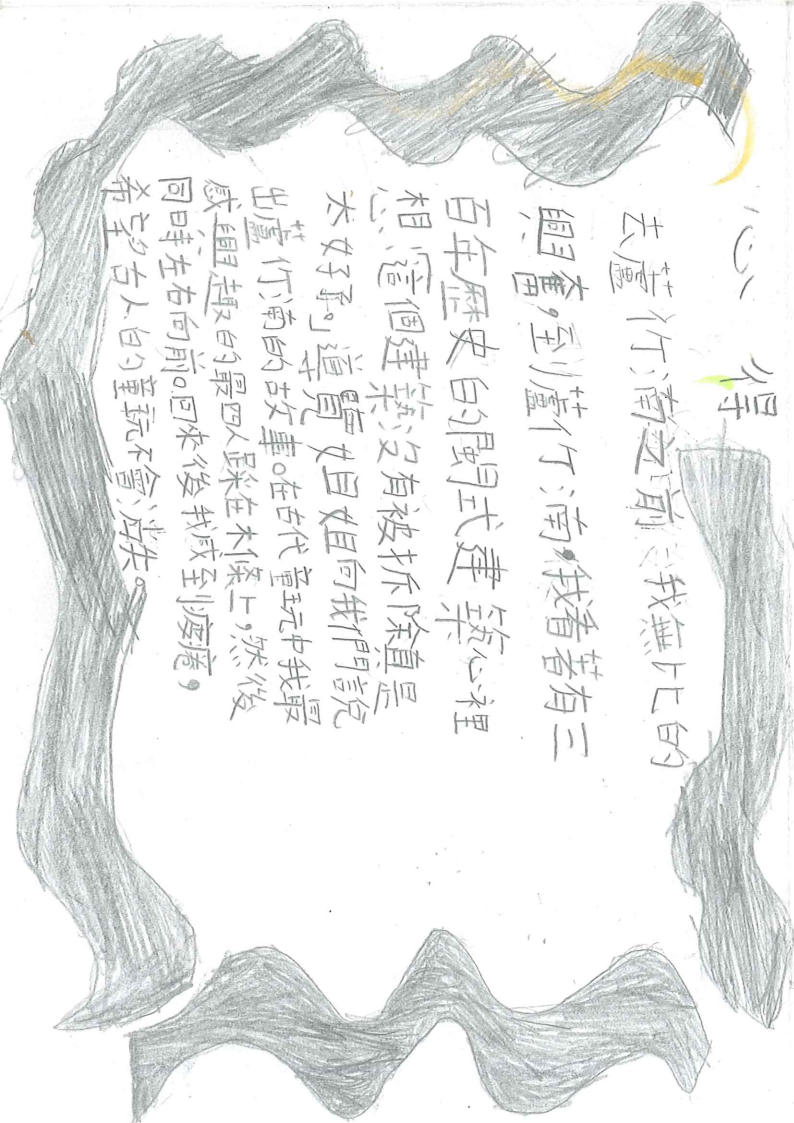 心得
去蘆荻竹湳之前:我無比的
興奮,到蘆竹湳,我看著有三
百年歷史的閩式建築心裡
想:這個建築沒有被拆除真是
太好了。」導覽姐姐向我們說
出蘆竹湳的故事。在古代童玩中我最
感興趣的最四人踩在木條上,然後
同時左右向前。回來後我感到疲倦,
希望古人的童玩不會消失。